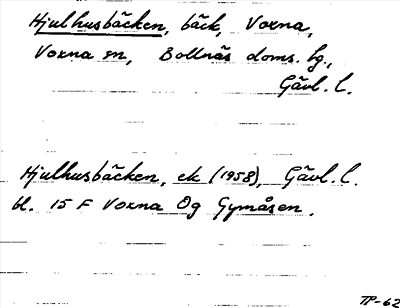 Hjulhusbäcken, bäck, Voxna,
Voxna sn, Bollnäs doms. hg.,
Gävl. l.
Hjulhusbäcken, ek (1958), Gävl. l.
bl. 15 F Voxna Og Gymåsen.
TP-62